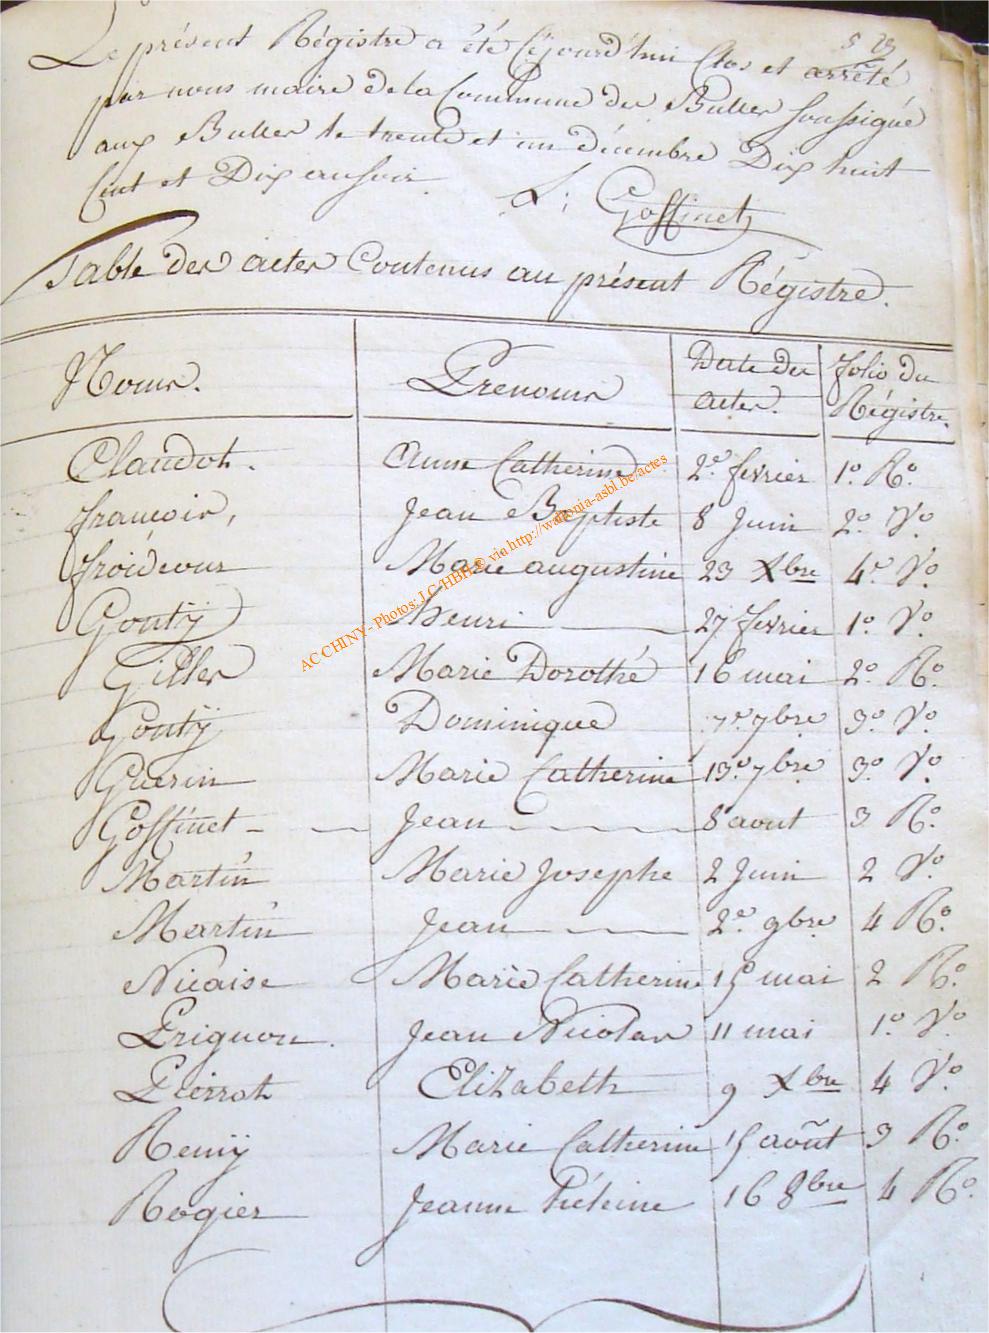 5 [?]
Le présent Régistre a été Cejourd'hui Clos et arrêté
par nous maire de la Commune des Bulles soussigné
aux Bulles le trente et un décembre Dix huit
Cent et Dix au soir. L: Goffinet
Table des actes Contenus au présent Régistre.
Noms. Prenoms Date des actes. folio du Régistre.
Claudot. Anne Catherine 2e fevrier 1o Ro.
francois, Jean Baptiste 8 Juin 2o Vo.
froidcour Marie augustine 23 Xbre 4e Vo.
Goutij henri 27 fevrier 1o Vo.
Gilles Marie Dorothé 16 mai 2o Ro.
Goutij Dominique 7e 7bre 3o Vo.
Guerin Marie Catherine 13e 7bre 3o Vo.
Goffinet Jean 8 aout 3 Ro.
Martin Marie Josephe 2 Juin 2 Vo.
Martin Jean 2e 9bre 4 Ro.
Nicaise Marie Catherine 15 mai 2 Ro.
Prignon. Jean Nicolas 11 mai 1o Vo.
Pierrot Elizabeth 9 Xbre 4 Vo.
Remij Marie Catherine 15 août 3 Ro.
Rogier Jeanne 16 8bre 4 Ro.
AC CHINY - Photos: J.C/HBH © via http://wallonia-asbl.be/actes